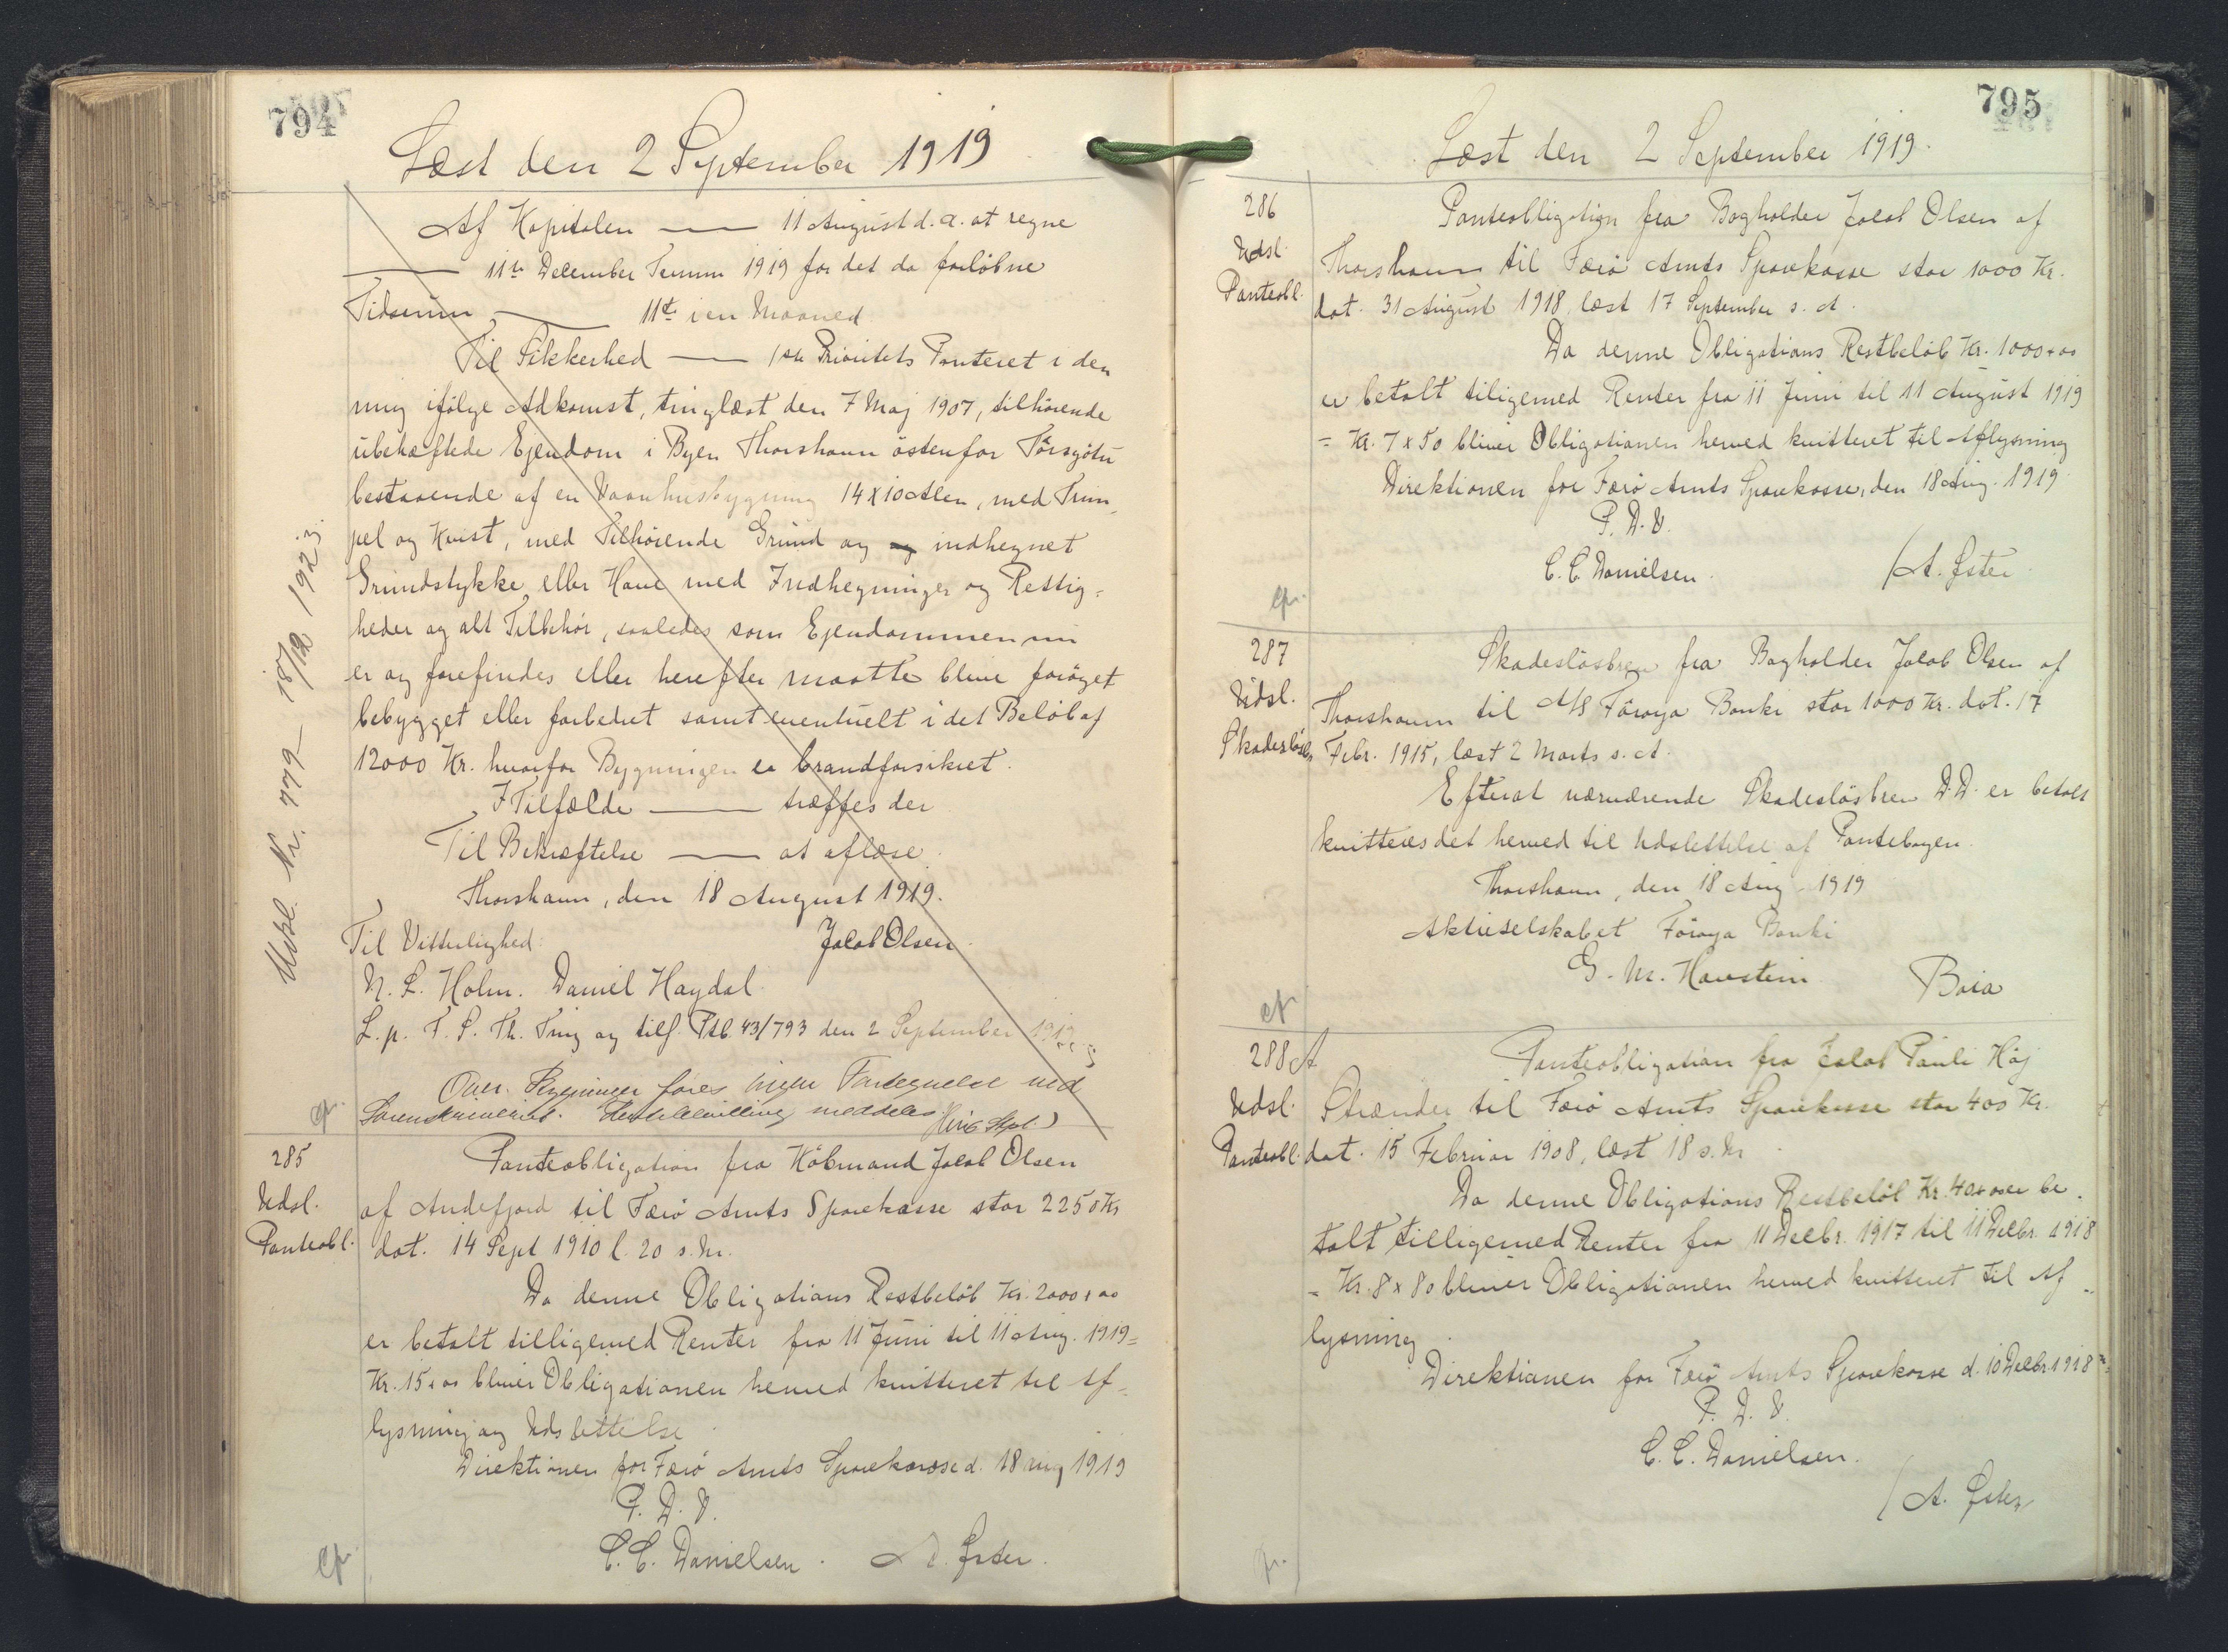 794
Læst den 2 September 1919
Af Kapitalen —— 11 August d. A. at regne
—— 11te December Termin 1919 for det da forløbne
Tidsrum —— 11te i en Maaned.
Til Sikkerhed —— 1ste Prioritets Panteret i den
mig ifølge Adkomst, tinglæst den 7 Maj 1907, tilhørende
ubehæftede Ejendom i Byen Thorshavn østenfor Tórsgøtu
bestaaende af en Vaanhusbygning 14 x 10 Alen, med Trem-
pel og Kvist, med Tilhørende Grund og indhegnet
Grundstykke eller Have med Indhegninger og Rettig-
heder og alt Tilbehør, saaledes som Ejendommen nu
er og forefindes eller herefter maatte blive forøget
bebygget eller forbedret samt eventuelt i det Beløb af
12000 Kr. hvorfor Bygningen er brandforsikret.
I Tilfælde —— træffes der
Til Bekræftelse —— at aflæse.
Thorshavn, den 18 August 1919.
Til Vitterlighed: Jacob Olsen.
N. L. Holm. Daniel Haydal.
L. p. F. S. Th. Ting og tilf. Ptb. 43/793 den 2 September 1919
Over Bygninger føres ingen Fortegnelse ved
Sorenskriveriet.
Udsl. Nr. 779 – 18/12 1923.
285
Udsl.
Panteobl.
Panteobligation fra Købmand Jacob Olsen
af Andefjord til Færø Amts Sparekasse stor 2250 Kr
dat. 14 Sept 1910 l. 20 s. M.
Da denne Obligations Restbeløb Kr. 2000 x 00
er betalt tilligemed Renter fra 11 Juni til 11 Aug. 1919 =
Kr. 15 x 00 bliver Obligationen herved kvitteret til Af-
lysning og Udslettelse
Direktionen for Færø Amts Sparekasse d. 18 Aug 1919
P. D. V.
C. C. Danielsen. A. Øster.
795
Læst den 2 September 1919.
286
Udsl
Panteobl.
Panteobligation fra Bogholder Jacob Olsen af
Thorshavn til Færø Amts Sparekasse stor 1000 Kr.
dat. 31 August 1918, læst 17 September s. A.
Da denne Obligations Restbeløb Kr. 1000 x 00
er betalt tiligemed Renter fra 11 Juni til 11 August 1919
= Kr. 7 x 50 bliver Obligationen herved kvitteret til Aflysning
Direktionen for Færø Amts Sparekasse, den 18 Aug. 1919
P. D. V.
C. C. Danielsen. / A. Øster
287
Udsl.
Skadesløsbr.
Skadesløsbrev fra Bogholder Jacob Olsen af
Thorshavn til A/S Føroya Banki stor 1000 Kr. dat. 17
Febr. 1915, læst 2 Marts s. A.
Efterat nærværende Skadesløsbrev D.D. er betalt
kvitteres det herved til Udslettelse af Pantebogen.
Thorshavn, den 18 Aug. 1919
Aktieselskabet Føroya Banki
Boia
288 A
Udsl.
Panteobl.
Panteobligation fra Jacob Pauli Høj
Strænder til Færø Amts Sparekasse stor 400 Kr.
dat. 15 Februar 1908, læst 18 s. M.
Da denne Obligations Restbeløb Kr. 400 x 00 er be-
talt tilligemed Renter fra 11 Decbr. 1917 til 11 Decbr. 1918
= Kr. 8 x 80 bliver Obligationen herved kvitteret til Af-
lysning.
Direktionen for Færø Amts Sparekasse d. 10 Decbr 1918
P. D. V.
C. C. Danielsen.
/ A. Øster